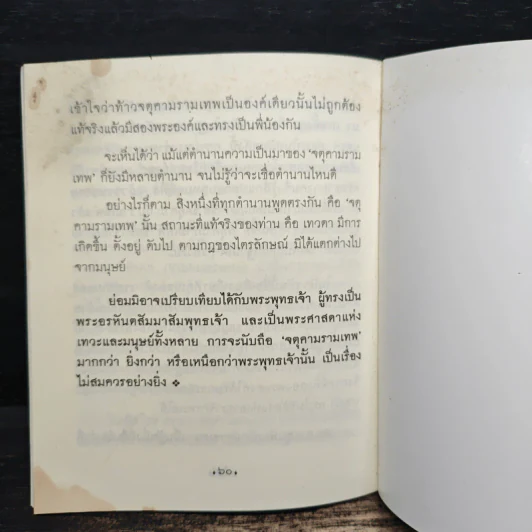 เข้าใจว่าท้าวจตุคามรามเทพเป็นองค์เดียวนั้นไม่ถูกต้อง
แท้จริงแล้วมีสองพระองค์และทรงเป็นพี่น้องกัน
จะเห็นได้ว่า แม้แต่ตำนานความเป็นมาของ ‘จตุคามราม
เทพ’ ก็ยังมีหลายตำนาน จนไม่รู้ว่าจะเชื่อตำนานไหนดี
อย่างไรก็ตาม สิ่งหนึ่งที่ทุกตำนานพูดตรงกัน คือ ‘จตุ
คามรามเทพ’ นั้น สถานะที่แท้จริงของท่าน คือ เทวดา มีการ
เกิดขึ้น ตั้งอยู่ ดับไป ตามกฎของไตรลักษณ์ มิได้แตกต่างไป
จากมนุษย์
ย่อมมิอาจเปรียบเทียบได้กับพระพุทธเจ้า ผู้ทรงเป็น
พระอรหันตสัมมาสัมพุทธเจ้า และเป็นพระศาสดาแห่ง
เทวะและมนุษย์ทั้งหลาย การจะนับถือ ‘จตุคามรามเทพ’
มากกว่า ยิ่งกว่า หรือเหนือกว่าพระพุทธเจ้านั้น เป็นเรื่อง
ไม่สมควรอย่างยิ่ง ❖
๖๐